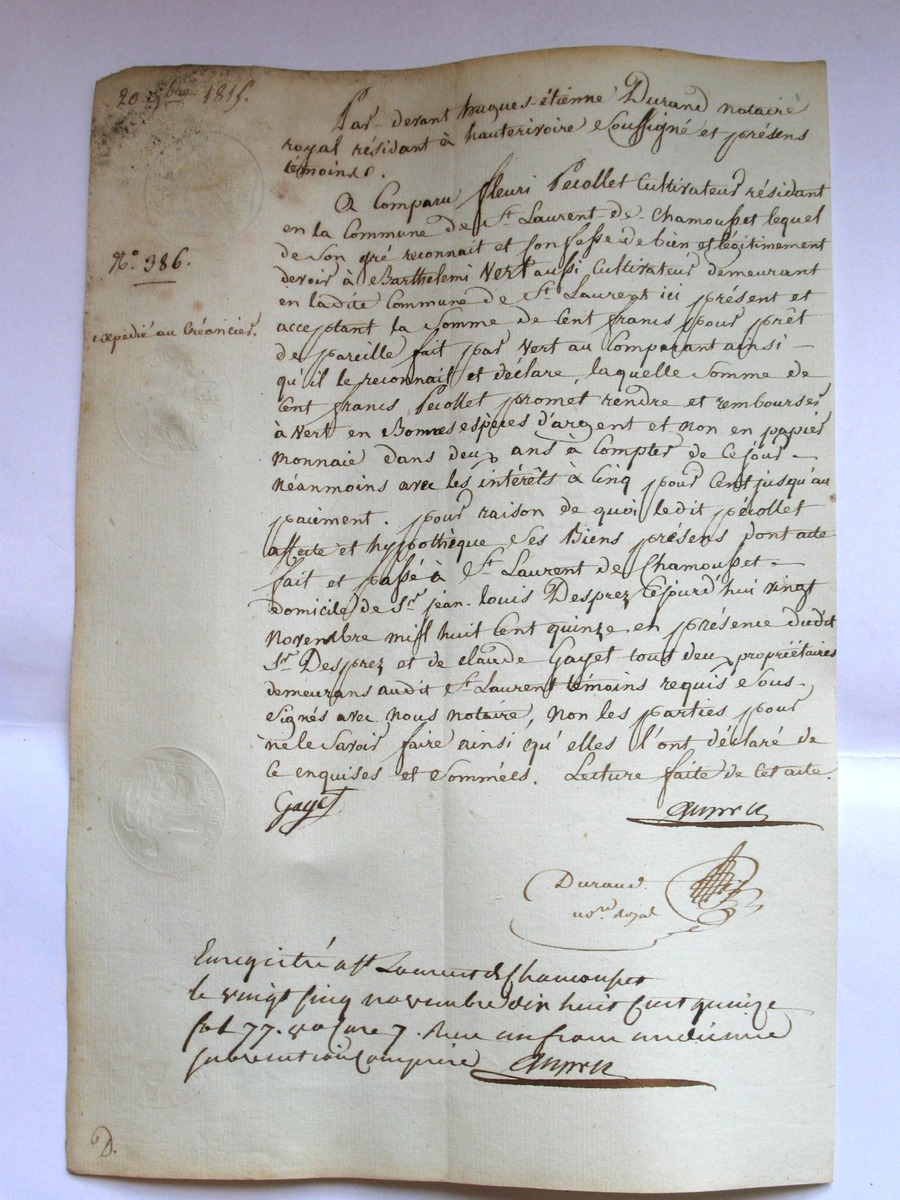 20 9bre 1815.
Par-devant haques-étienne Durand notaire
royal résidant à hauterivoire soussigné et présens
témoins.
A Comparu fleuri Pécollet Cultivateur résidant
en la Commune de St Laurent-de-Chamousset lequel
de son gré reconnait et confesse de bien et légitimement
devoir à Barthelemi Vert aussi Cultivateur demeurant
en ladite Commune de St Laurent ici présent et
acceptant la somme de Cent francs pour prêt
de pareille fait par Vert au Comparant ainsi
qu'il le reconnait et déclare, laquelle somme de
Cent francs Pécollet promet rendre et rembourser
à Vert en Bonnes espèces d'argent et non en papier
monnaie dans deux ans à Compter de Ce jour
Néanmoins avec les intérêts à Cinq pour Cent jusqu'au
paiement. pour raison de quoi ledit pécollet
affecte et hypothèque Ses Biens présens dont acte
fait et passé à St Laurent de Chamousset
domicile de Sr jean-louis Desprez Cejourd'hui vingt
Novembre mil huit Cent quinze en présence dudit
Sr Desprez et de claude Gayet tous deux propriétaires
demeurans audit St Laurent témoins requis sous-
signés avec nous notaire, non les parties pour
ne le savoir faire ainsi qu'elles l'ont déclaré de
Ce enquises et sommées. Lecture faite de Cet acte.
N.o 386.
expédié au Créancier.
Gayet
Durand
no.re royal
Enregistré a St Laurent de Chamousset
le vingt cinq novembre dix huit cent quinze
fol 77. vo Case 7. Reçu un franc un dixieme
subvention comprise
D.